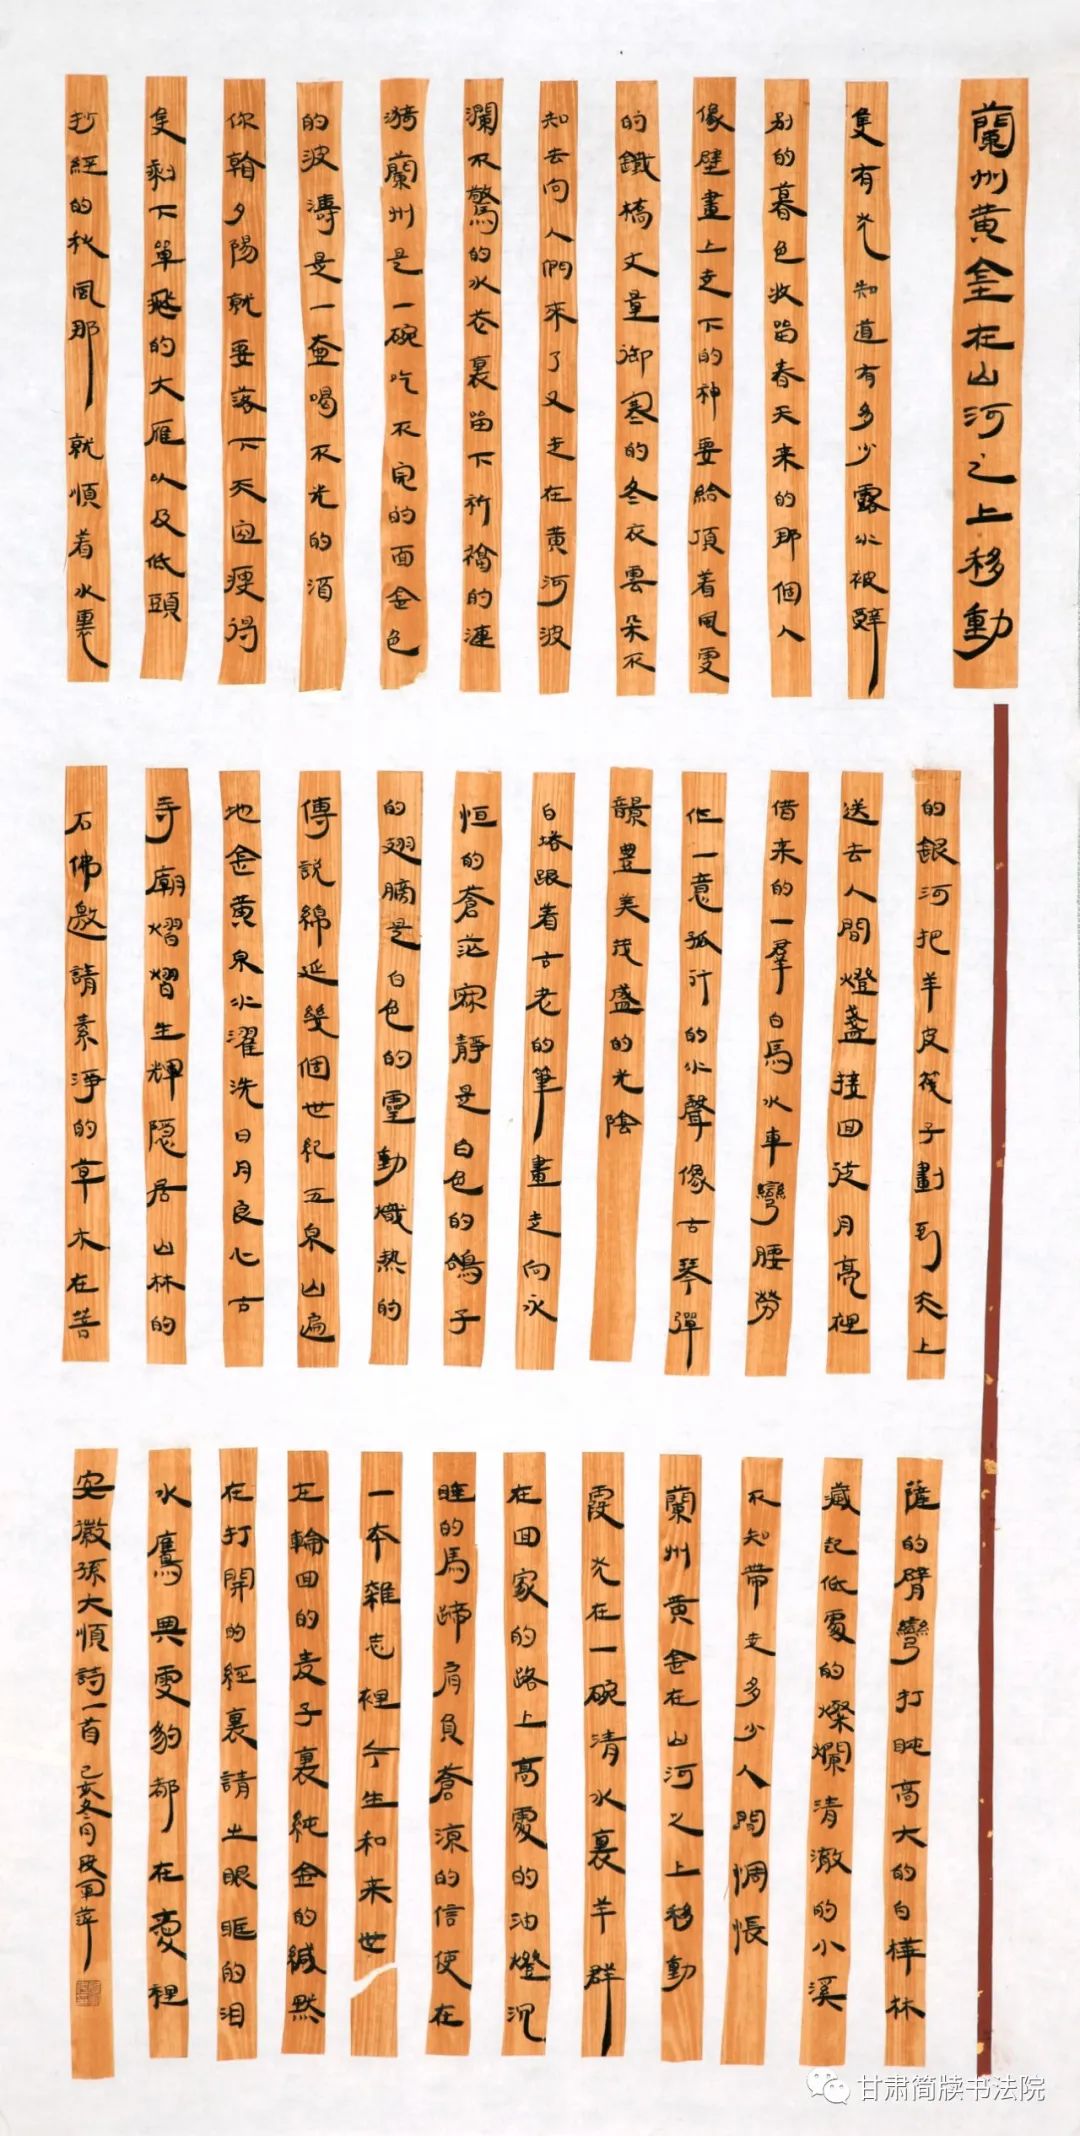 蘭州黄金在山河之上移動
隻有光知道有多少露水被辭
别的暮色收留春天来的那個人
像壁畫上走下的神要給頂着風雯
的鐵橋丈量御寒的冬衣雲朵不
知去向人們來了又走在黄河波
瀾不驚的水巷裏留下祈禱的漣
漪蘭州是一碗吃不完的面金色
的波濤是一壺喝不光的酒
你翰夕陽就要落下天空瘦得
隻剩下單飛的大雁以及低頭
抄經的秋風那就順着水裏
的銀河把羊皮筏子劃到天上
送去人間燈盞接回從月亮裡
借来的一羣白馬水車彎腰勞
作一意孤行的水聲像古琴彈
韻豐美茂盛的光陰
白塔跟着古老的筆畫走向永
恒的蒼茫寂靜是白色的鴿子
的翅膀是白色的靈動熾熱的
傳説綿延幾個世紀五泉山遍
地金黄泉水濯洗日月良心古
寺廟熠熠生輝隐居山林的
石佛邀請素淨的草木在菩
薩的臂彎打盹高大的白樺林
藏起低處的燦爛清澈的小溪
不知带走多少人間惆悵
蘭州黄金在山河之上移動
霞光在一碗清水裏羊群
在回家的路上高處的油燈沉
睡的馬蹄肩負蒼凉的信使在
一本雜志裡今生和来世
在輪回的麦子裏純金的緘默
在打開的經裏請上眼眶的泪
水鷹與雯豹都在夜裡
安徽孫大順詩一首 己亥冬月 段軍萍
甘肃简牍书法院